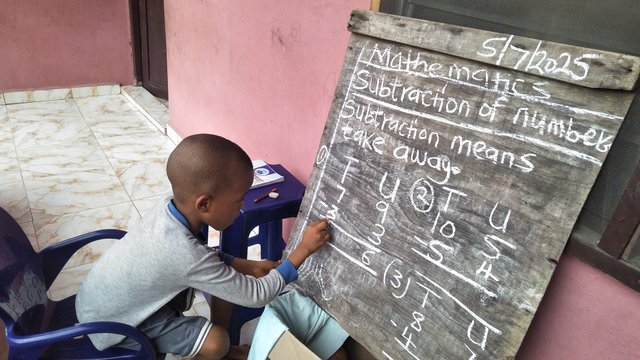 5/7/2025
Mathematics
Subtraction of number
Subtraction means
take away.
① T U
7 9
-3 3
6
② T U
10 5
-5 4
(3) T U
8
-4